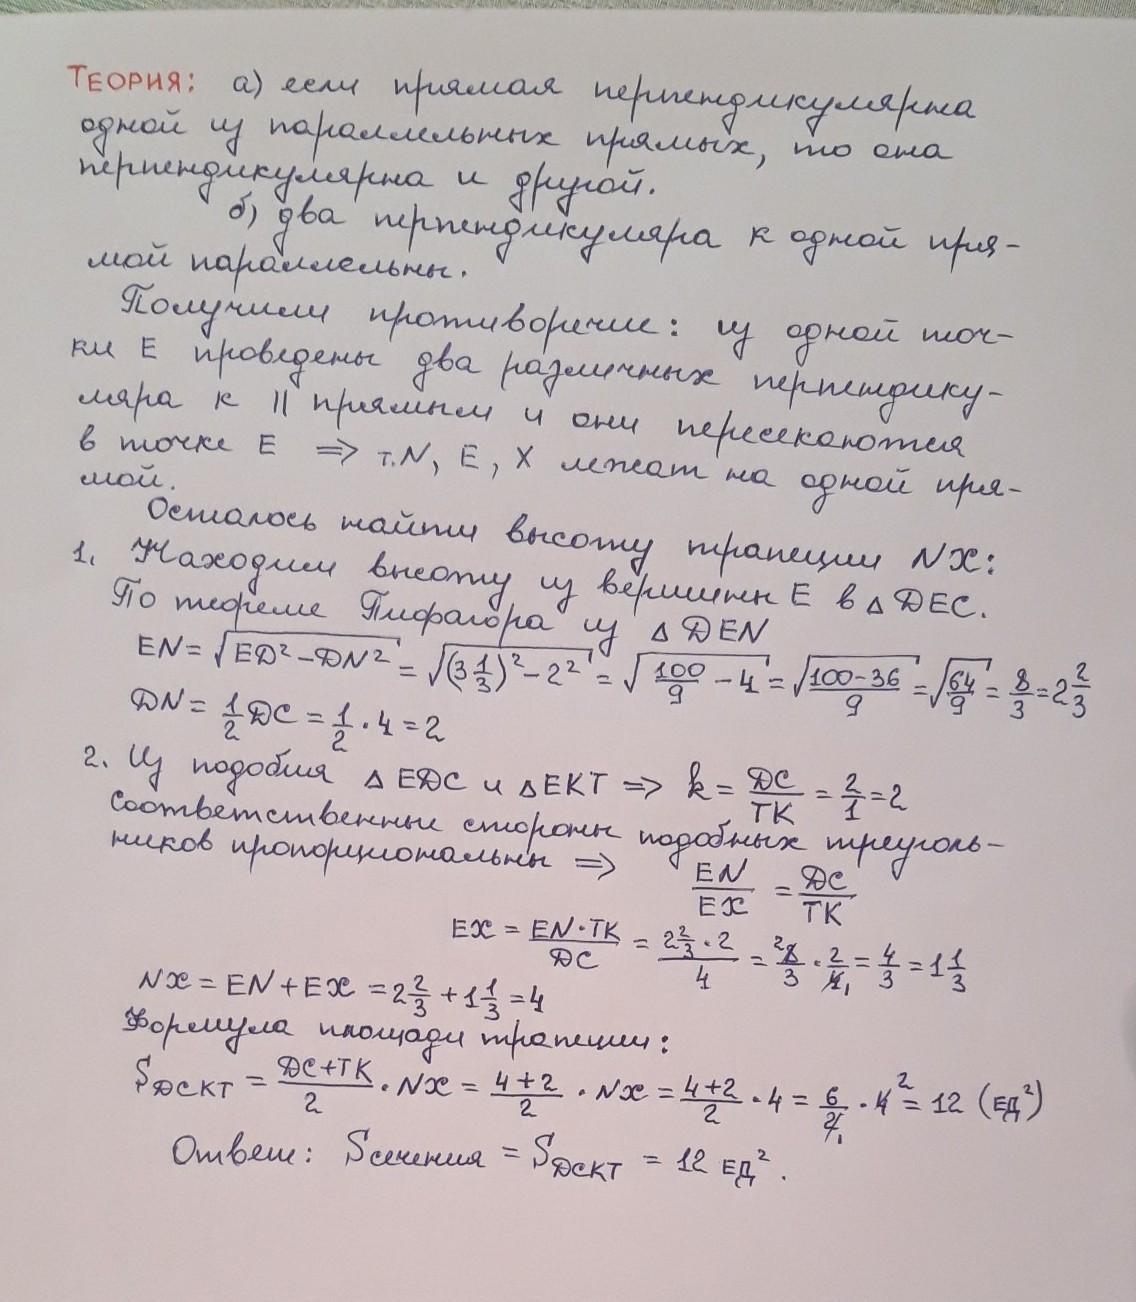 ТЕОРИЯ: а) если прямая перпендикулярна
одной из параллельных прямых, то она
перпендикулярна и другой.
б) два перпендикуляра к одной пря-
мой параллельны.
Получили противоречие: из одной точ-
ки E проведены два различных перпендику-
ляра к || прямым и они пересекаются
в точке E => т. N, E, X лежат на одной пря-
мой.
Осталось найти высоту трапеции NX:
1. Находим высоту из вершины E в △DEC.
По теореме Пифагора из △DEN
EN = √(ED² − DN²) = √((3 1/3)² − 2²) = √(100/9 − 4) = √((100−36)/9) = √(64/9) = 8/3 = 2 2/3
DN = 1/2 DC = 1/2 · 4 = 2
2. Из подобия △EDC и △EKT => k = DC/TK = 2/1 = 2
Соответственные стороны подобных треуголь-
ников пропорциональны => EN/EX = DC/TK
EX = EN·TK/DC = (2 2/3 · 2)/4 = 8/3 · 2/4 = 4/3 = 1 1/3
NX = EN + EX = 2 2/3 + 1 1/3 = 4
Формула площади трапеции:
S DCKT = (DC+TK)/2 · NX = (4+2)/2 · NX = (4+2)/2 · 4 = 6/2 · 4 = 12 (ед²)
Ответ: S сечения = S DCKT = 12 ед².